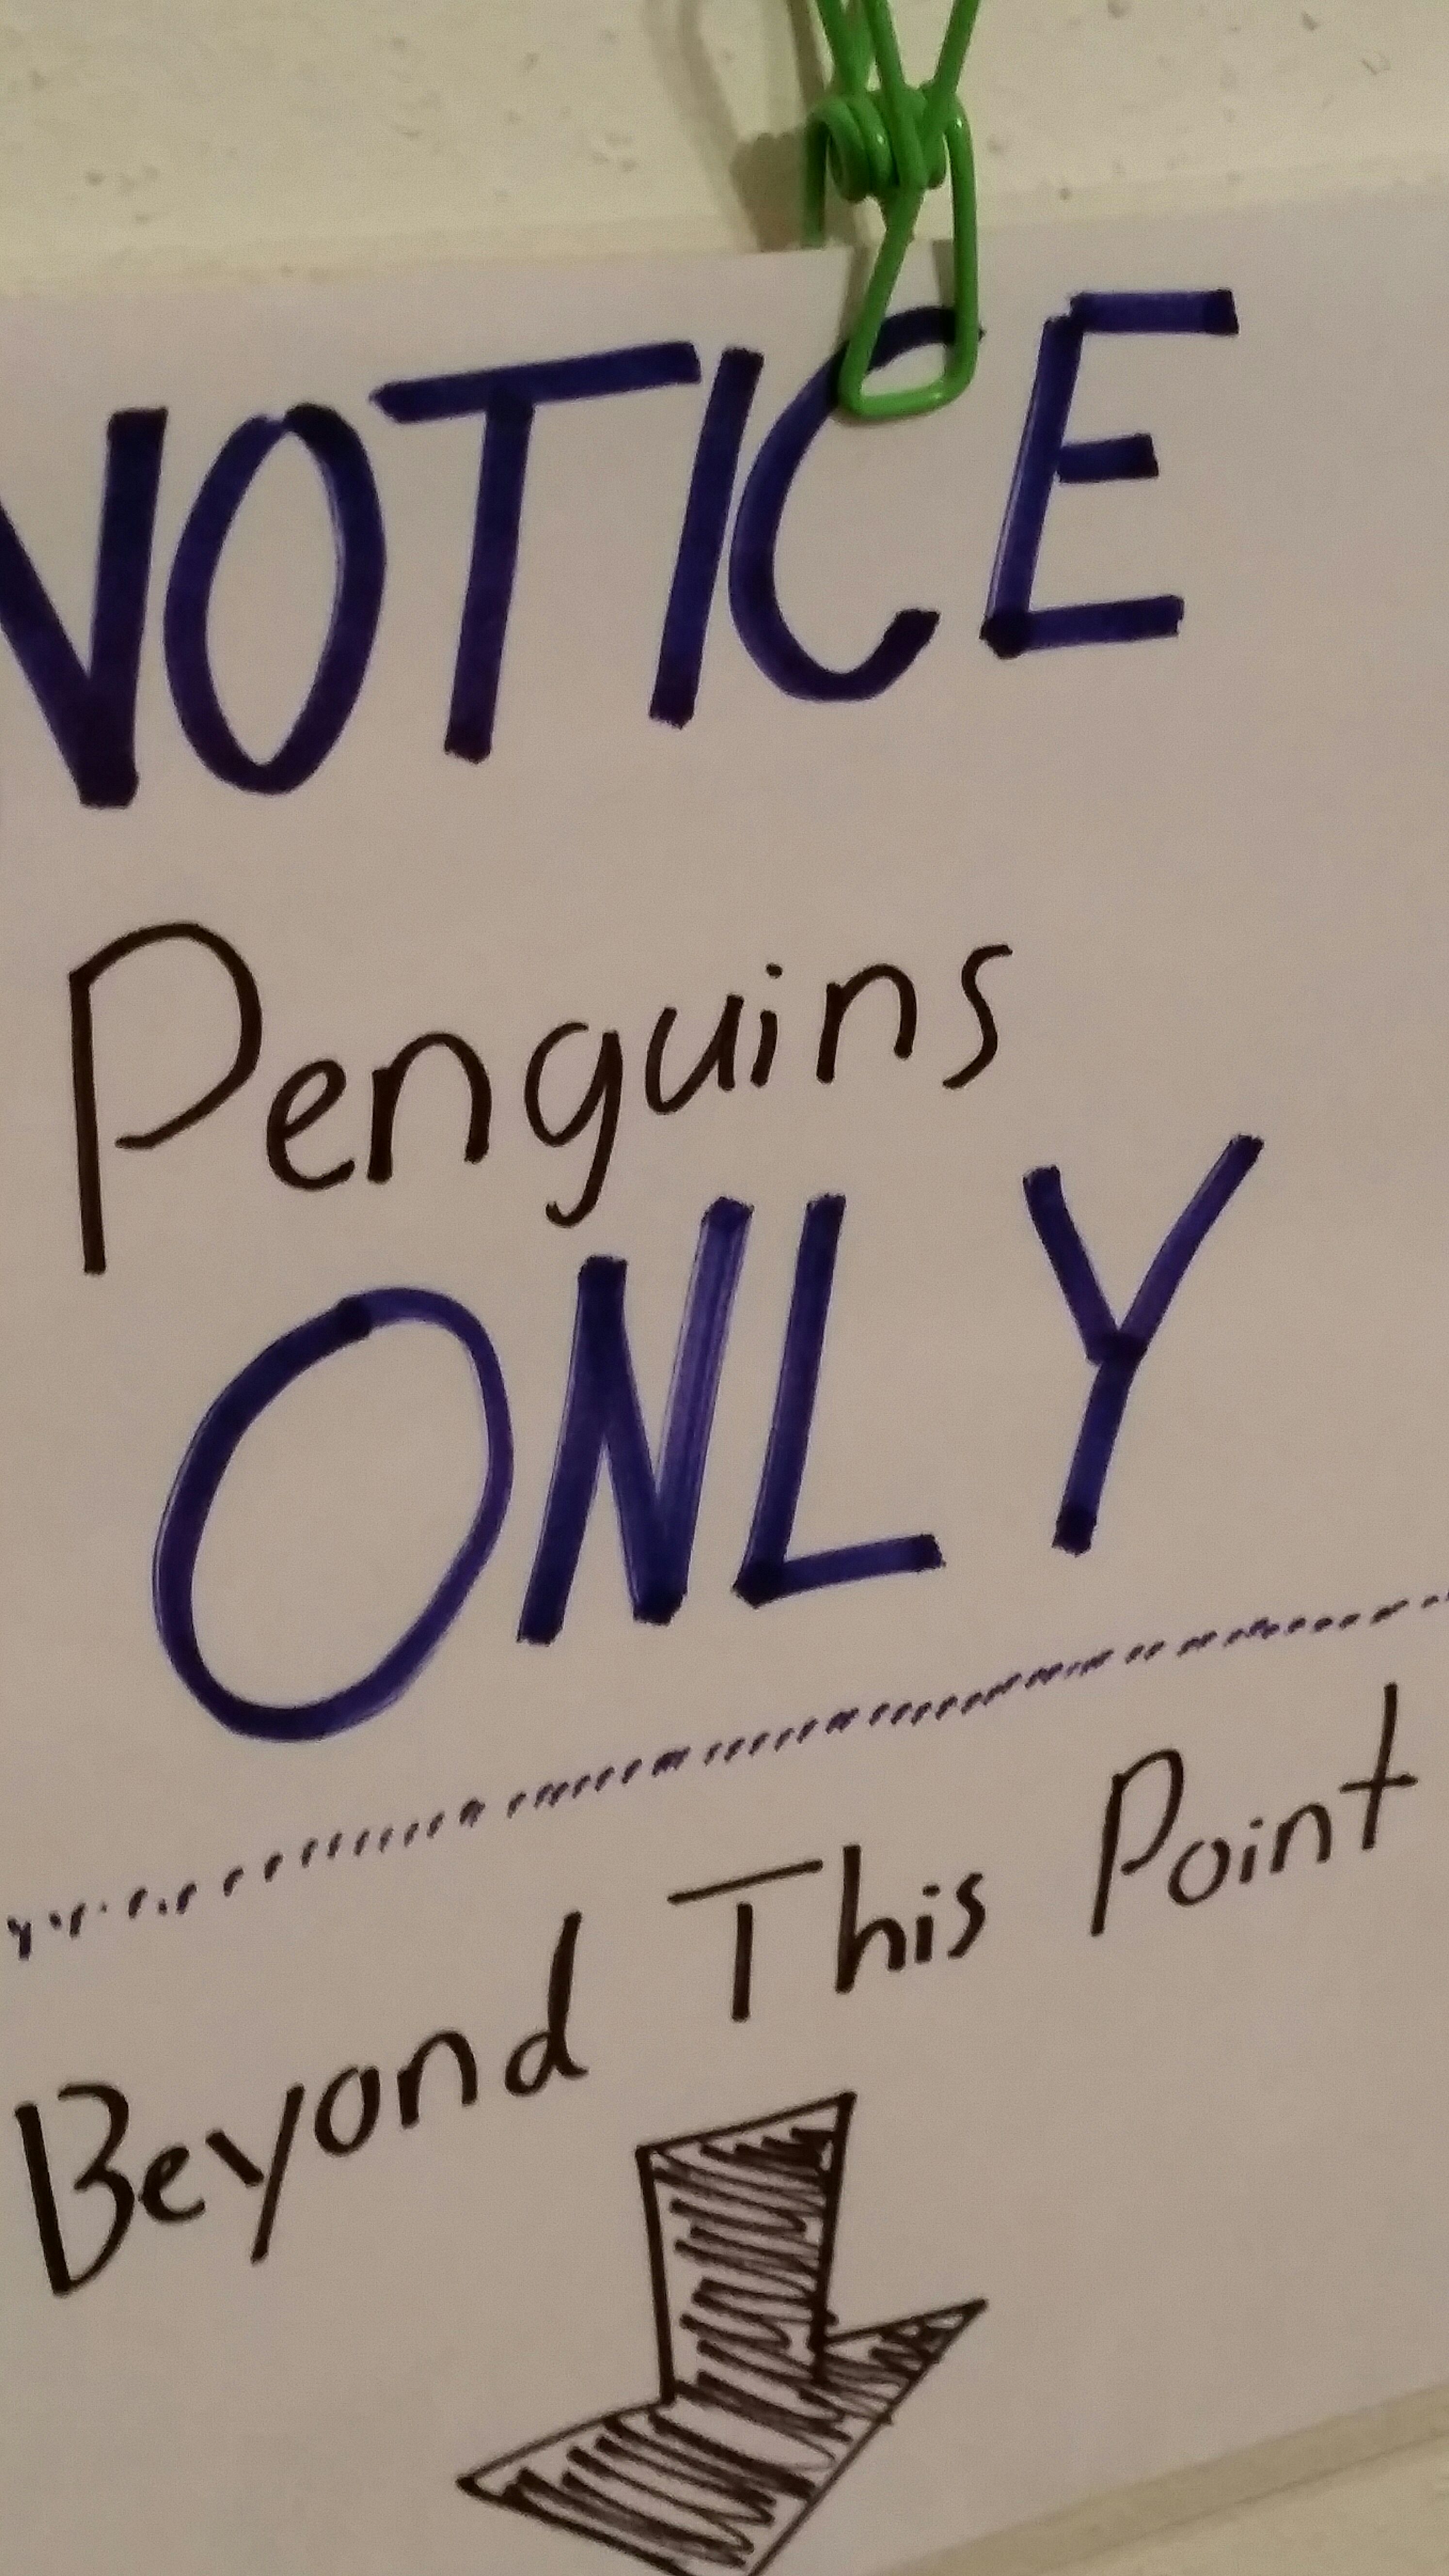 NOTICE
Penguins
ONLY
Beyond This Point